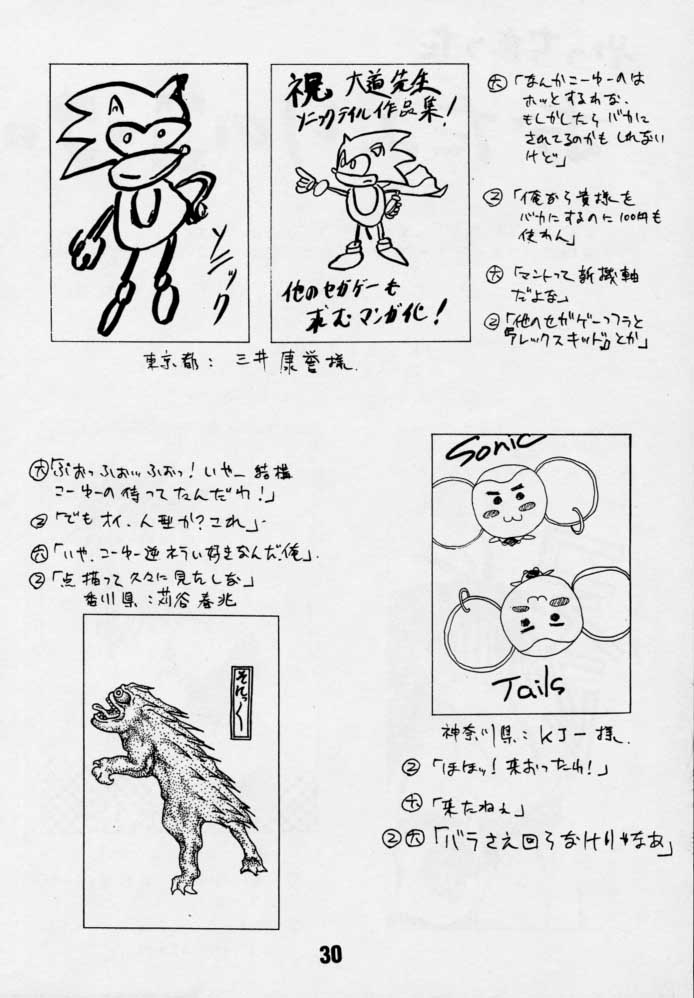 ソニック
祝 大道先生
ソニックテイル作品集!
他のセガゲーも
求むマンガ化!
東京都: 三井 康誉様.
㊅「なんかこーゆーのは
ホッとするわな.
もしかしたら バカに
されてるのかも しれない
けど」
②「俺が貴様を
バカにするのに100円も
使わん」
㊅「マントって 新機軸
だよな」
②「他のセガゲーっつうと
『アレックスキッド』とか」
㊅「ぶおっふおっふおっ! いやー 結構
こーゆーの待ってたんだわ!」
②「でも オイ、人型か? これ」
㊅「いや、こーゆー逆ねらい好きなんだ、俺」.
②「点描って 久々に 見たしな」
香川県: 苅谷 春兆
そにっく
Sonic
Tails
神奈川県: KJー 様.
②「ほほッ! 来おったわ!」
㊅「来たねえ」
②㊅「バラさえ回らなけりゃなあ」
30